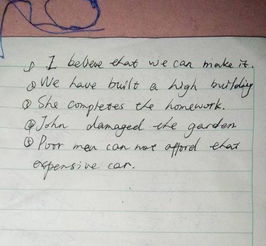 ① I believe that we can make it.
② We have built a high building
③ She completes the homework.
④ John damaged the garden
⑤ Poor men can not afford that
expensive car.